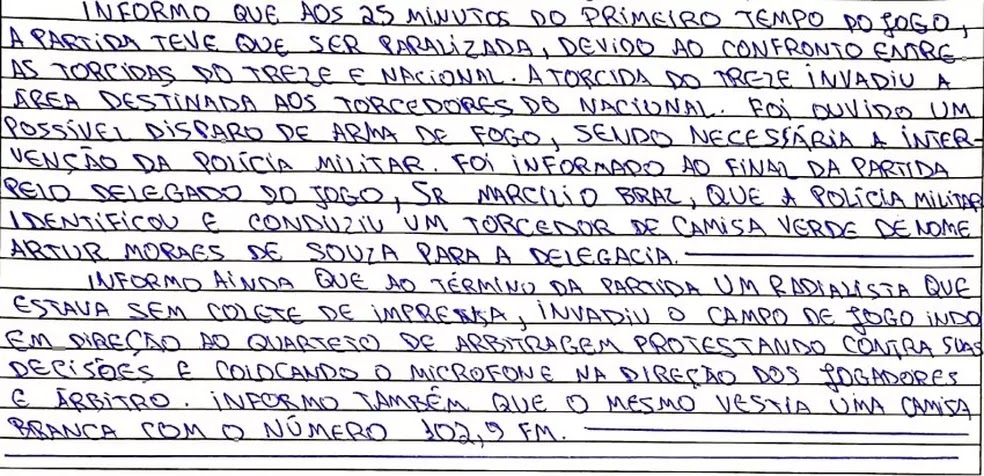 INFORMO QUE AOS 25 MINUTOS DO PRIMEIRO TEMPO DO JOGO,
A PARTIDA TEVE QUE SER PARALIZADA, DEVIDO AO CONFRONTO ENTRE
AS TORCIDAS DO TREZE E NACIONAL. A TORCIDA DO TREZE INVADIU A
ÁREA DESTINADA AOS TORCEDORES DO NACIONAL. FOI OUVIDO UM
POSSÍVEL DISPARO DE ARMA DE FOGO, SENDO NECESSÁRIA A INTER-
VENÇÃO DA POLÍCIA MILITAR. FOI INFORMADO AO FINAL DA PARTIDA
PELO DELEGADO DO JOGO, SR MARCÍLIO BRAZ, QUE A POLÍCIA MILITAR
IDENTIFICOU E CONDUZIU UM TORCEDOR DE CAMISA VERDE DE NOME
ARTUR MORAES DE SOUZA PARA A DELEGACIA.
INFORMO AINDA QUE AO TÉRMINO DA PARTIDA UM RADIALISTA QUE
ESTAVA SEM COLETE DE IMPRENSA, INVADIU O CAMPO DE JOGO INDO
EM DIREÇÃO AO QUARTETO DE ARBITRAGEM PROTESTANDO CONTRA SUAS
DECISÕES E COLOCANDO O MICROFONE NA DIREÇÃO DOS JOGADORES
E ÁRBITRO. INFORMO TAMBÉM QUE O MESMO VESTIA UMA CAMISA
BRANCA COM O NÚMERO 102,9 FM.